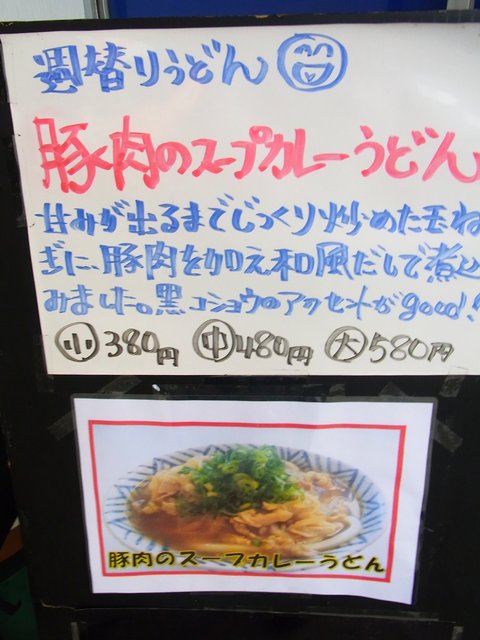 週替りうどん
豚肉のスープカレーうどん
甘みが出るまでじっくり炒めた玉ね
ぎに、豚肉を加え和風だしで煮込
みました。黒コショウのアクセントがgood!!
小380円 中480円 大580円
豚肉のスープカレーうどん